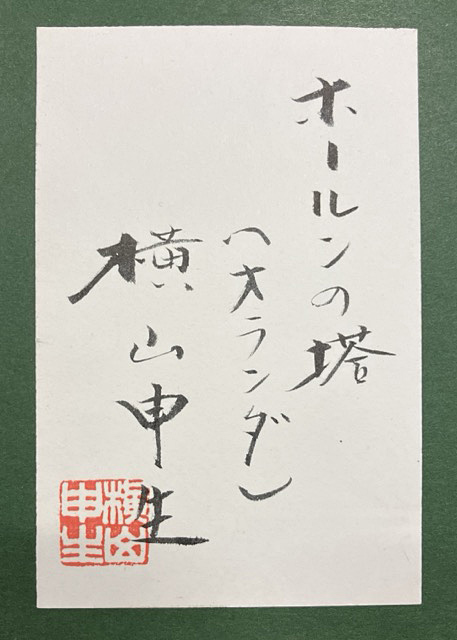 ホールンの塔
(オランダ)
横山申生
横山
申生